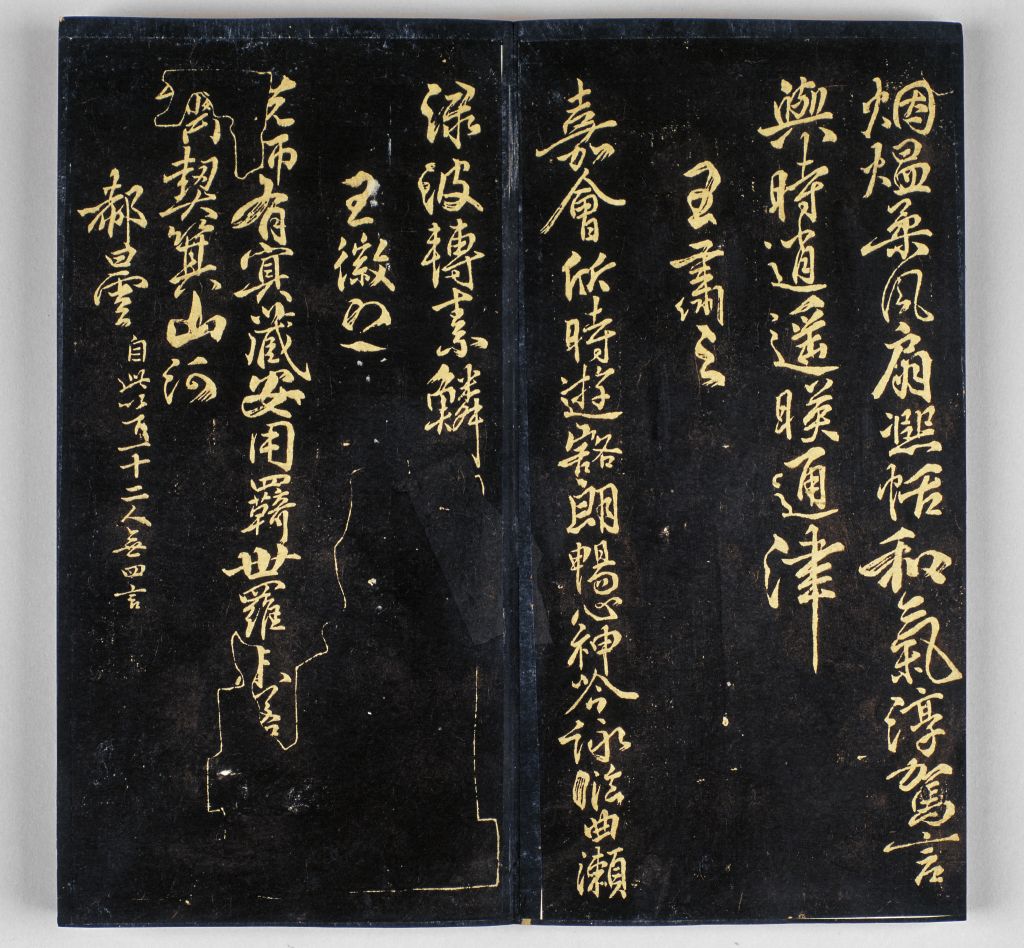 烟熅柔風找熙恬和氣淳駕言
興時逍遥暎通津
王肅之
嘉會欣時遊豁朗暢心神吟詠曲瀨
渌波轉素鱗
王徽之
先師有冥藏安用羈世羅若
契箕山河
郗曇 自此以一十二人無四言